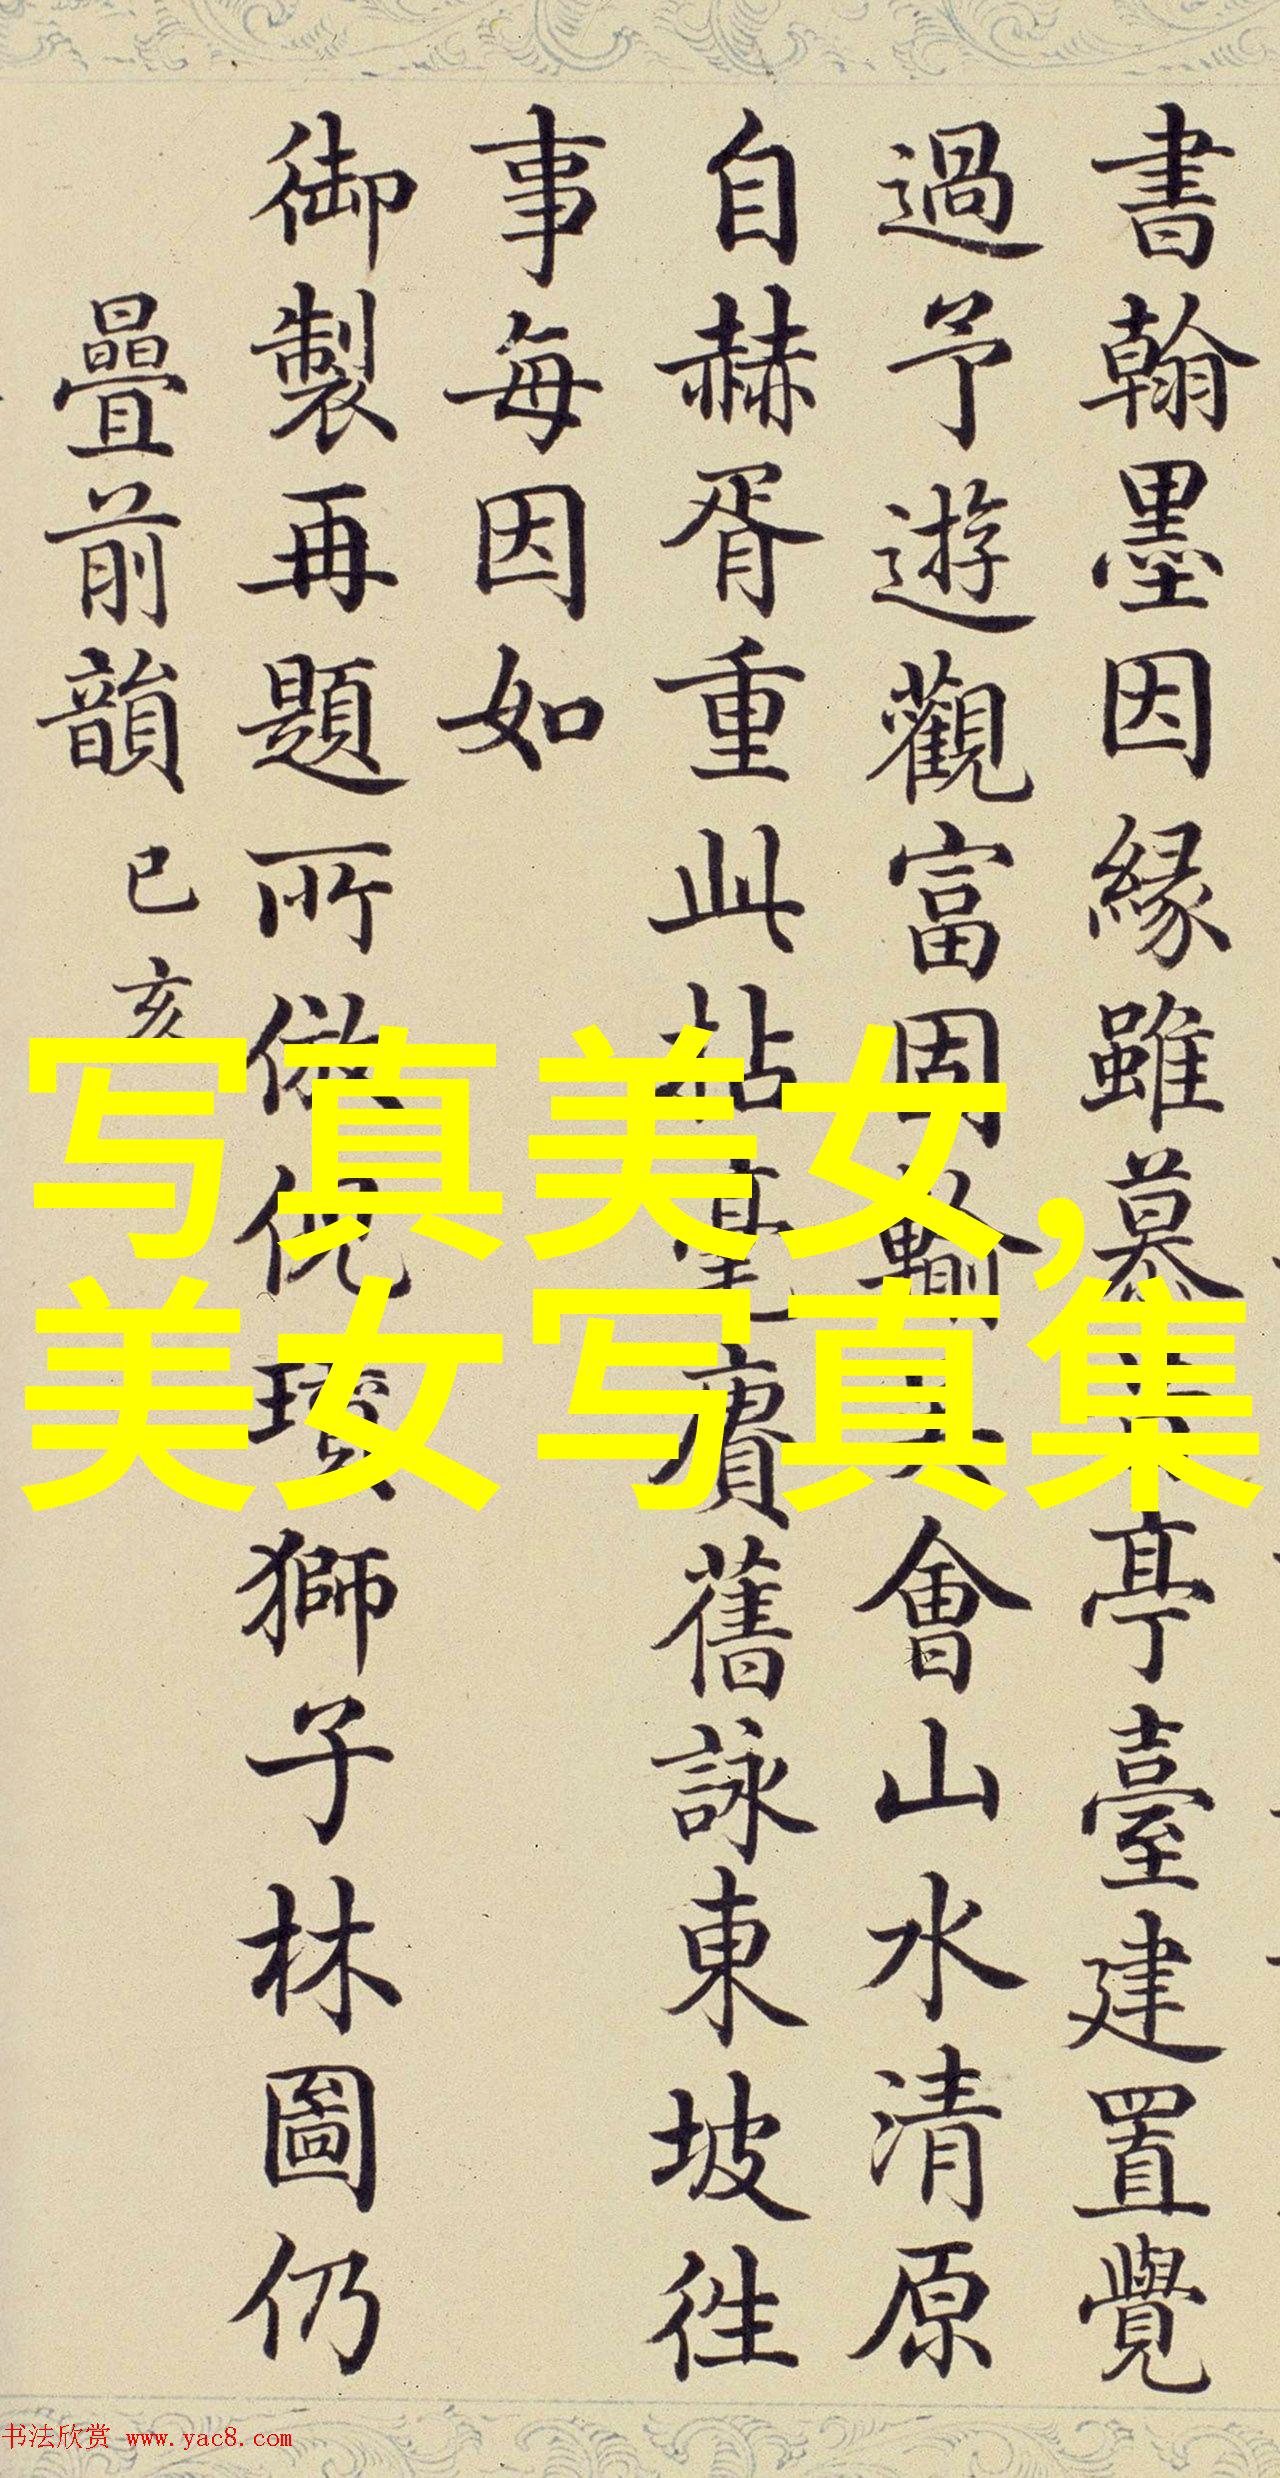 書翰墨因緣雖慕亭臺建置覺
過予遊觀富周會山水清原
自赫胥重此拈毫賡舊詠東坡徃
事每因如
御製再題所倣倪瓚獅子林圖仍
疊前韻已亥
写真美女,
美女写真集
书法欣赏 www.yac8.com